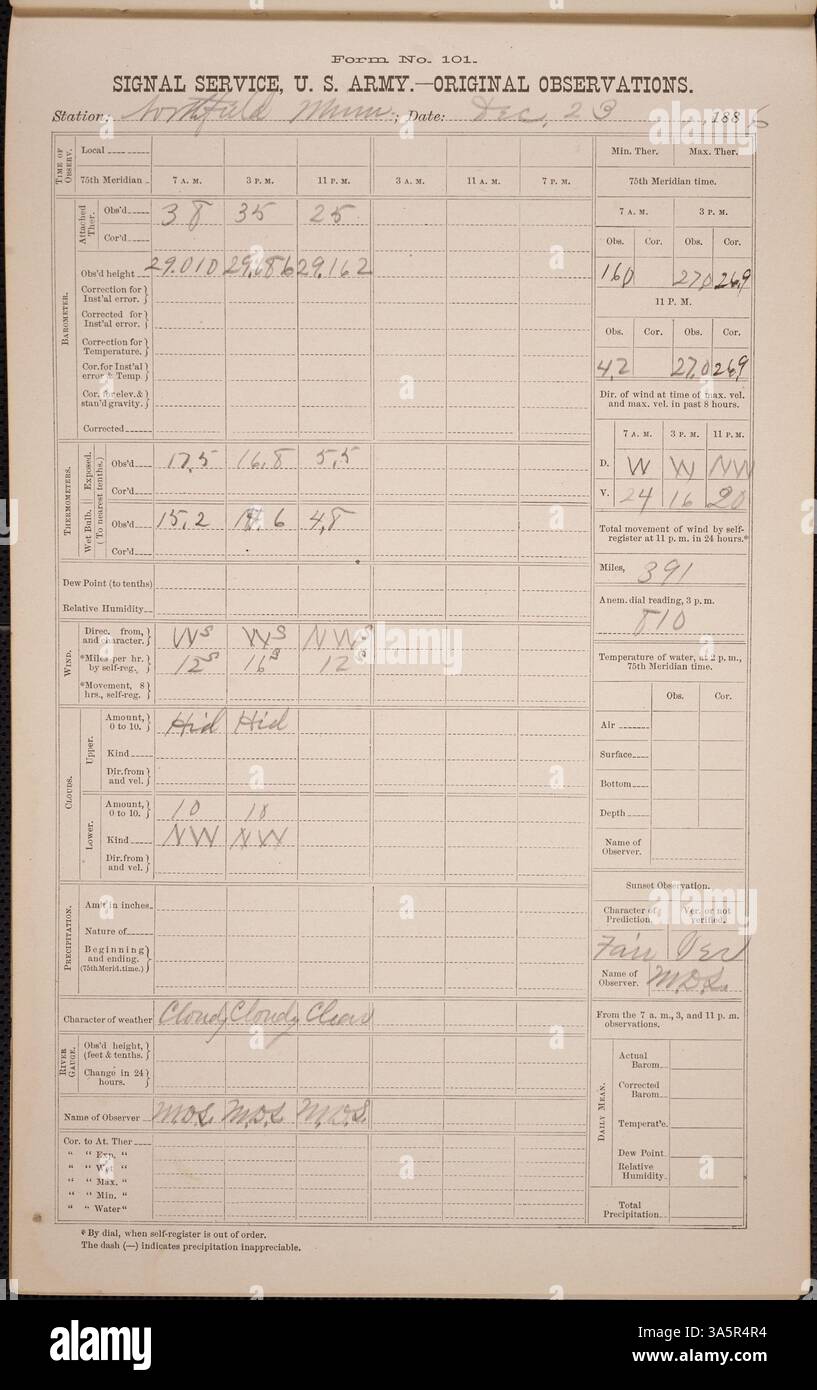 Form No. 101.
SIGNAL SERVICE, U. S. ARMY.—ORIGINAL OBSERVATIONS.
Station: Northfield Minn; Date: Dec, 23, 1886
TIME OF OBSERV.
Local
75th Meridian 7 A. M. 3 P. M. 11 P. M. 3 A. M. 11 A. M. 7 P. M.
BAROMETER.
Attached Ther.
Obs'd 38 35 25
Cor'd
Obs'd height 29.010 29.162
Correction for Inst'al error.
Corrected for Inst'al error.
Correction for Temperature.
Cor. for Inst'al error & Temp
Cor. for elev. & stan'd gravity.
Corrected
THERMOMETERS.
(To nearest tenths.)
Exposed.
Obs'd 17.5 16.8 5.5
Cor'd
Wet Bulb.
Obs'd 15.2 14.6 4.8
Cor'd
Dew Point (to tenths)
Relative Humidity
WIND.
Direc. from, and character. W S W S NW S
*Miles per hr. by self-reg. 12 S 16 S 12 S
*Movement, 8 hrs., self-reg.
CLOUDS.
Upper.
Amount, 0 to 10. Hid Hid
Kind
Dir. from and vel.
Lower.
Amount, 0 to 10. 10 10
Kind NW NW
Dir. from and vel.
PRECIPITATION.
Am't in inches
Nature of
Beginning and ending. (75th Merid. time.)
Character of weather Cloudy Cloudy Clear
RIVER GAUGE.
Obs'd height, (feet & tenths.
Change in 24 hours.
Name of Observer M.O.S. M.O.S. M.O.S.
Cor. to At. Ther
" " Exp. "
" " Wet "
" " Max. "
" " Min. "
" " Water "
Min. Ther. Max. Ther.
75th Meridian time.
7 A. M. 3 P. M.
Obs. Cor. Obs. Cor.
16.0 27.0 26.9
11 P. M.
Obs. Cor. Obs. Cor.
4.2 27.0 26.9
Dir. of wind at time of max. vel. and max. vel. in past 8 hours.
7 A. M. 3 P. M. 11 P. M.
D. W W NW
V. 24 16 20
Total movement of wind by self-register at 11 p. m. in 24 hours.*
Miles, 391
Anem. dial reading, 3 p. m.
810
Temperature of water, at 2 p. m., 75th Meridian time.
Obs. Cor.
Air
Surface
Bottom
Depth
Name of Observer.
Sunset Observation.
Character of Prediction. Ver. or not verified.
Fair Ver
Name of Observer. M.O.S.
From the 7 a. m., 3, and 11 p. m. observations.
DAILY MEAN.
Actual Barom
Corrected Barom
Temperat'e.
Dew Point
Relative Humidity
Total Precipitation
* By dial, when self-register is out of order.
The dash (—) indicates precipitation inappreciable.
alamy
Image ID: 3A5R4R4
www.alamy.com